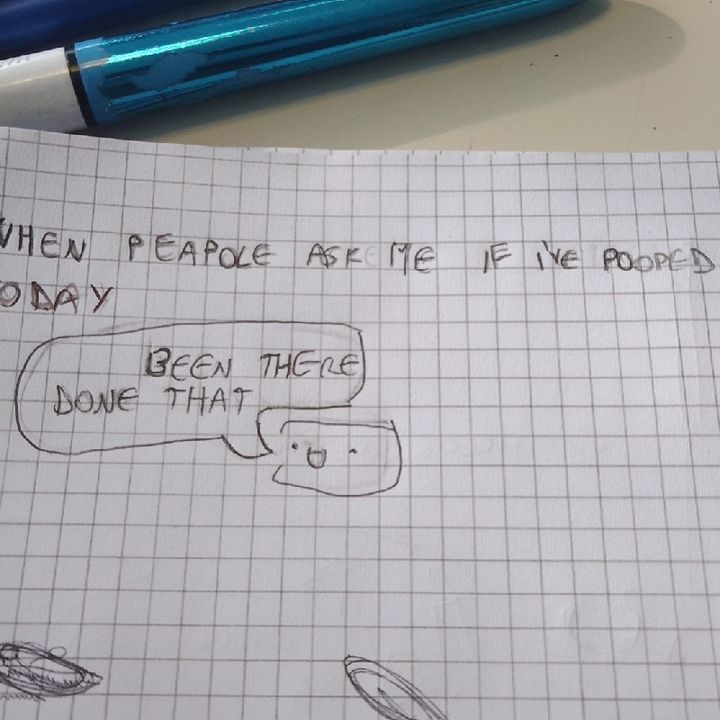 WHEN PEAPOLE ASK ME IF I'VE POOPED
ODAY
BEEN THERE
DONE THAT